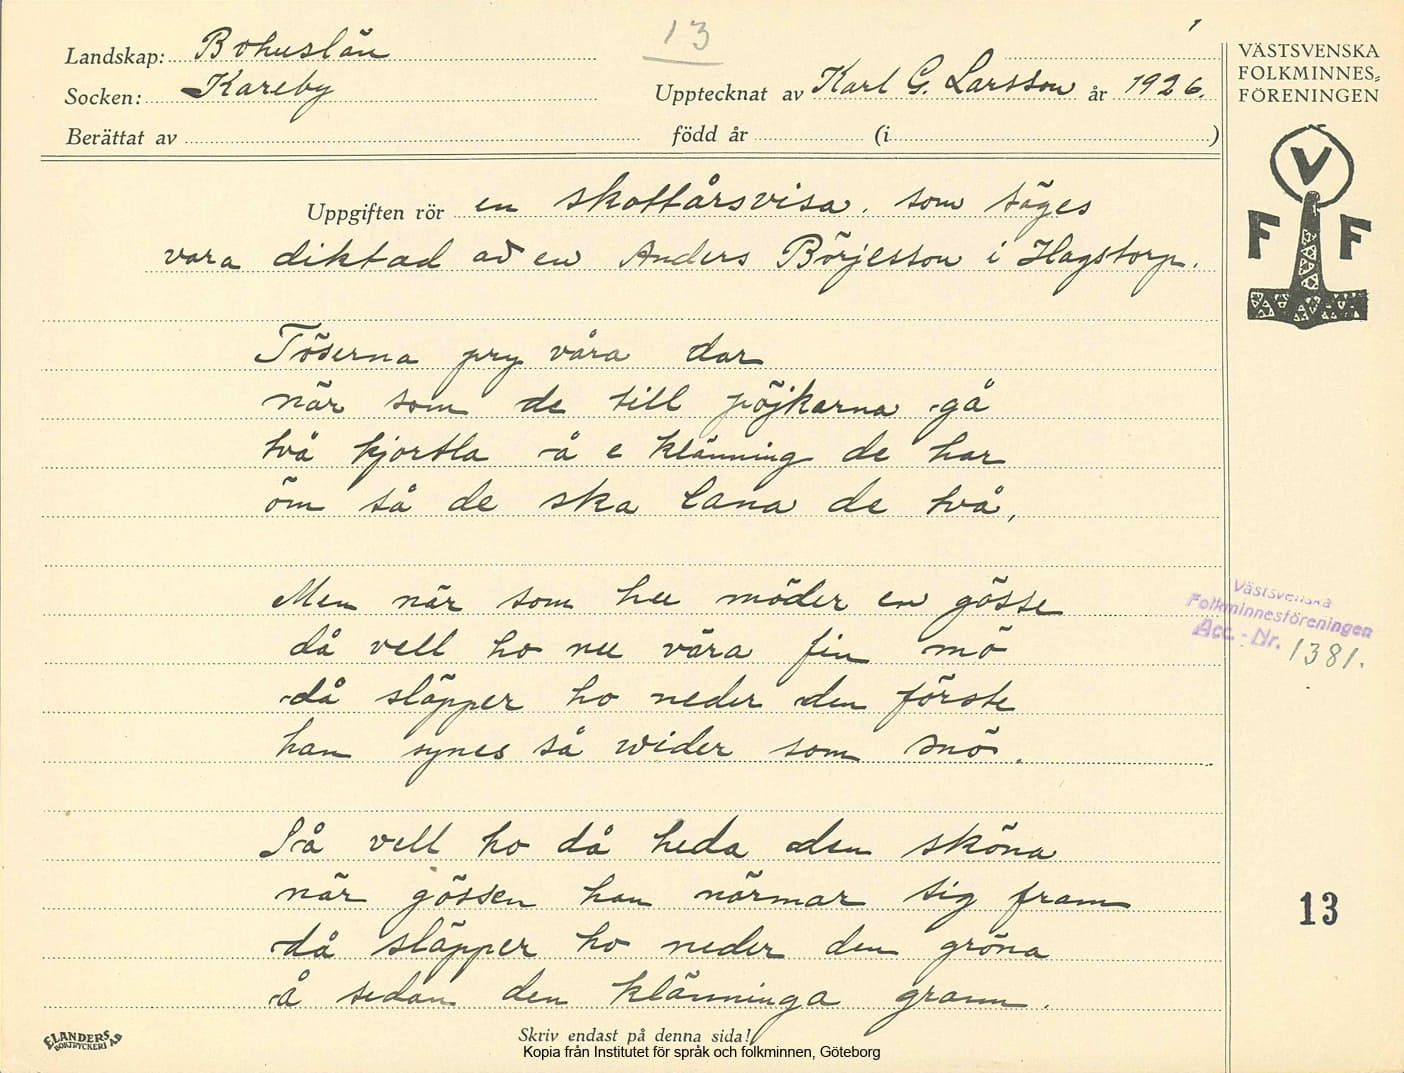 13
1
Landskap: Bohuslän
Socken: Kareby
Upptecknat av Karl G. Larsson år 1926.
Berättat av född år (i )
VÄSTSVENSKA
FOLKMINNES-
FÖRENINGEN
V
F F
Uppgiften rör en skottårsvisa, som säges
vara diktad av en Anders Börjesson i Hagstorp.
Töserna pry våra dar
när som de till pöjkarna gå
två kjortla å e klänning de har
öm så de ska lana de två,
Men när som hu möder en gösse
då vell ho nu våra fin mö
då släpper ho neder den förste
han synes så wider som snö.
Så vell ho då heda den sköna
när gössen han närmar sig fram
då släpper ho neder den gröna
å sedan den klänninga grann.
Västsvenska
Folkminnesföreningen
Acc.-Nr. 1381.
13
ELANDERS
BOKTRYCKERI AB
Skriv endast på denna sida!
Kopia från Institutet för språk och folkminnen, Göteborg